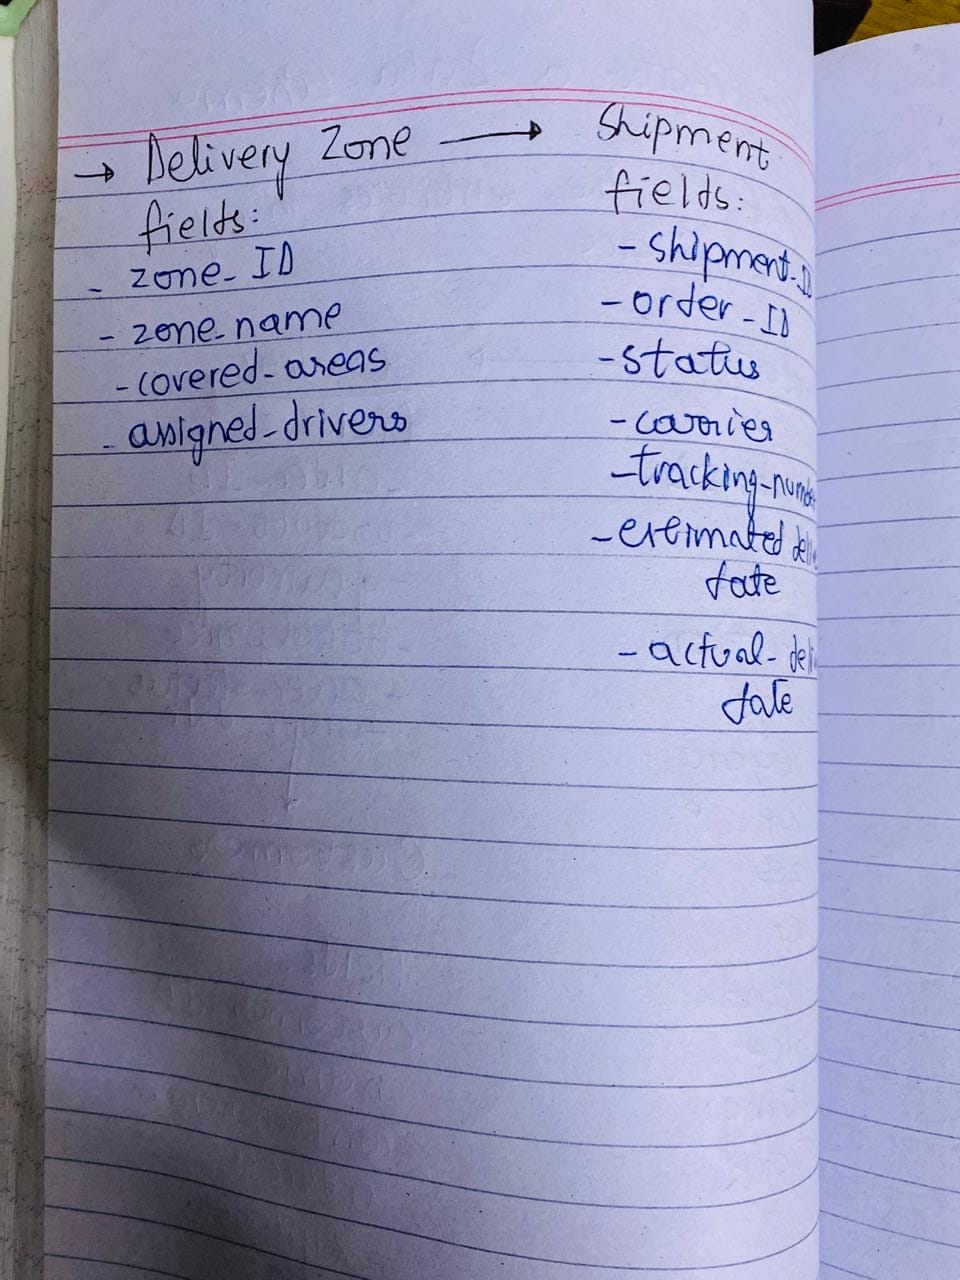 → Delivery Zone → Shipment
fields:
- zone_ID
- zone_name
- covered_areas
- assigned_drivers
fields:
- shipment_ID
- order_ID
- status
- carrier
- tracking_number
- estimated
date
- actual_
date